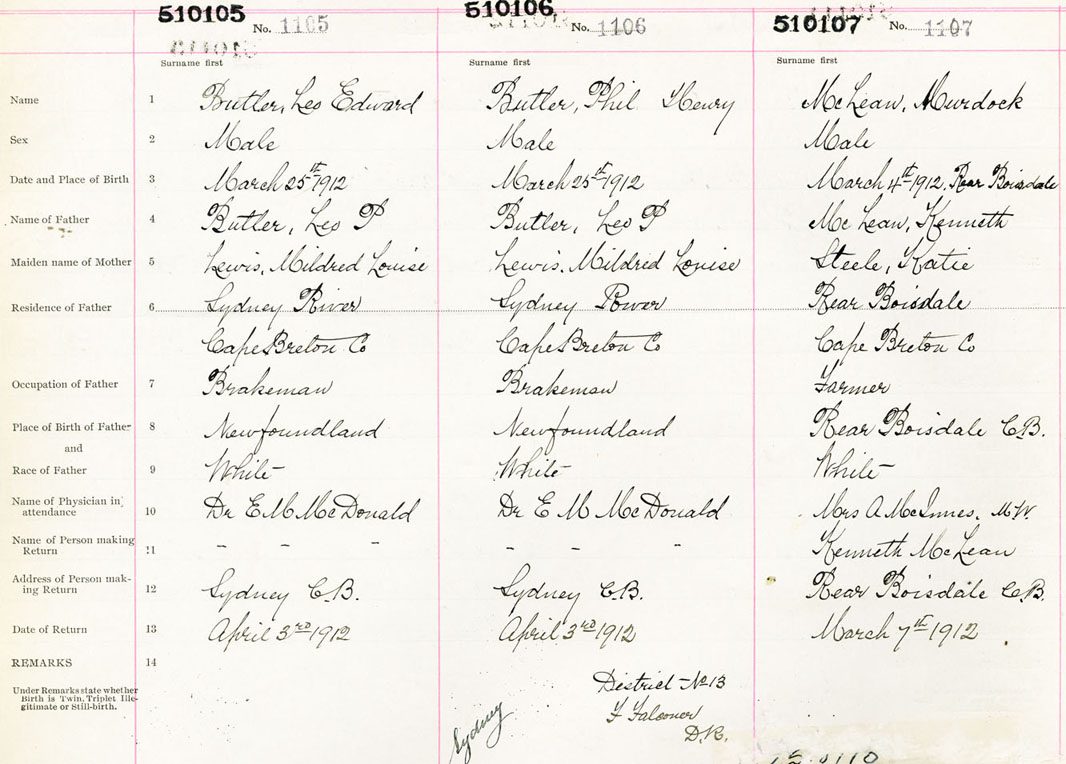 510105 No. 1105 510106 No. 1106 510107 No. 1107
Surname first Surname first Surname first
Name 1 Butler, Leo Edward Butler, Phil Henry McLean, Murdock
Sex 2 Male Male Male
Date and Place of Birth 3 March 25th 1912 March 25th 1912 March 4th 1912, Rear Boisdale
Name of Father 4 Butler, Leo P Butler, Leo P McLean, Kenneth
Maiden name of Mother 5 Lewis, Mildred Louise Lewis, Mildred Louise Steele, Katie
Residence of Father 6 Sydney River Sydney River Rear Boisdale
Cape Breton Co Cape Breton Co Cape Breton Co
Occupation of Father 7 Brakeman Brakeman Farmer
Place of Birth of Father 8 Newfoundland Newfoundland Rear Boisdale C.B.
and
Race of Father 9 White White White
Name of Physician in attendance 10 Dr E M McDonald Dr E M McDonald Mrs A McInnes, M.W.
Name of Person making Return 11 – – – – – – Kenneth McLean
Address of Person mak-ing Return 12 Sydney C.B. Sydney C.B. Rear Boisdale C.B.
Date of Return 13 April 3rd 1912 April 3rd 1912 March 7th 1912
REMARKS 14
Under Remarks state whether
Birth is Twin, Triplet Ille-
gitimate or Still-birth.
District No 13
F Falconer
D.R.
Sydney